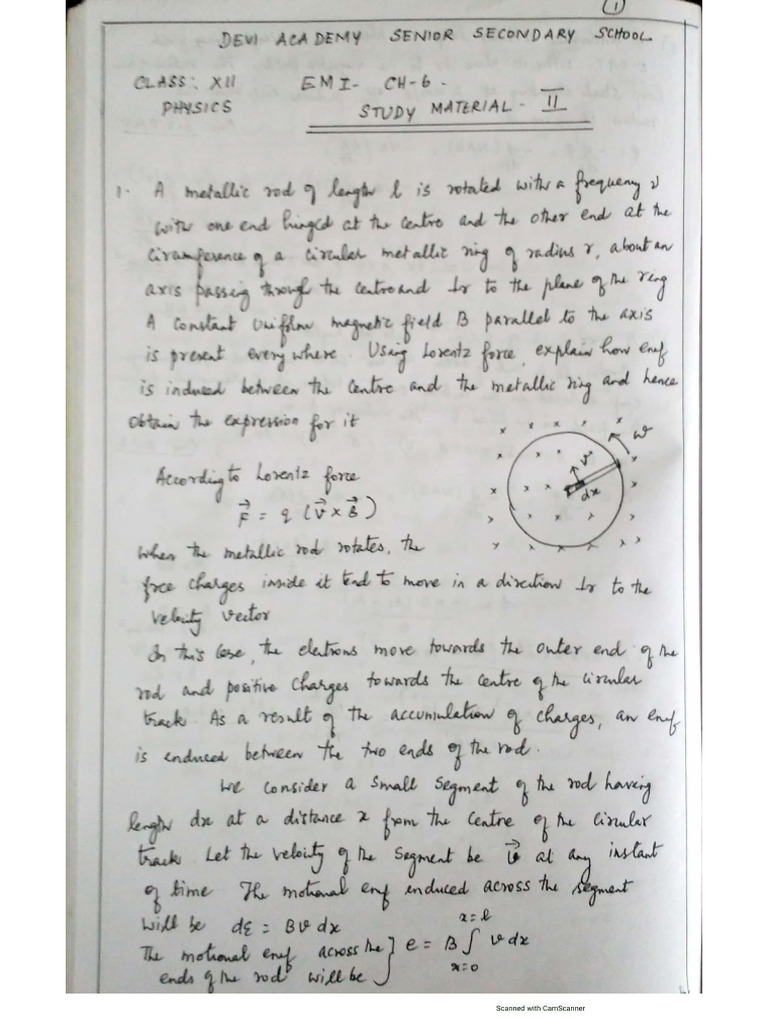 1
DEVI ACADEMY SENIOR SECONDARY SCHOOL
CLASS: XII EMI- CH-6-
PHYSICS STUDY MATERIAL- II
1. A metallic rod of length l is rotated with a frequency ν
with one end hinged at the centre and the other end at the
circumference of a circular metallic ring of radius r, about an
axis passing through the centre and ⊥r to the plane of the ring
A constant uniform magnetic field B parallel to the axis
is present every where. Using Lorentz force, explain how emf
is induced between the centre and the metallic ring and hence
obtain the expression for it
x x x x x
ω
v
dx
According to Lorentz force
F⃗ = q (V⃗ x B⃗)
When the metallic rod rotates, the
free charges inside it tend to move in a direction ⊥r to the
velocity vector
In this case, the electrons move towards the outer end of the
rod and positive charges towards the centre of the circular
track. As a result of the accumulation of charges, an emf
is enduced between the two ends of the rod.
We consider a small segment of the rod having
length dx at a distance x from the centre of the circular
track. Let the velocity of the segment be v⃗ at any instant
of time The motional emf enduced across the segment
will be dε = Bv dx
The motional emf across the } e = B ∫ v dx
x=l
x=0
ends of the rod will be
Scanned with CamScanner